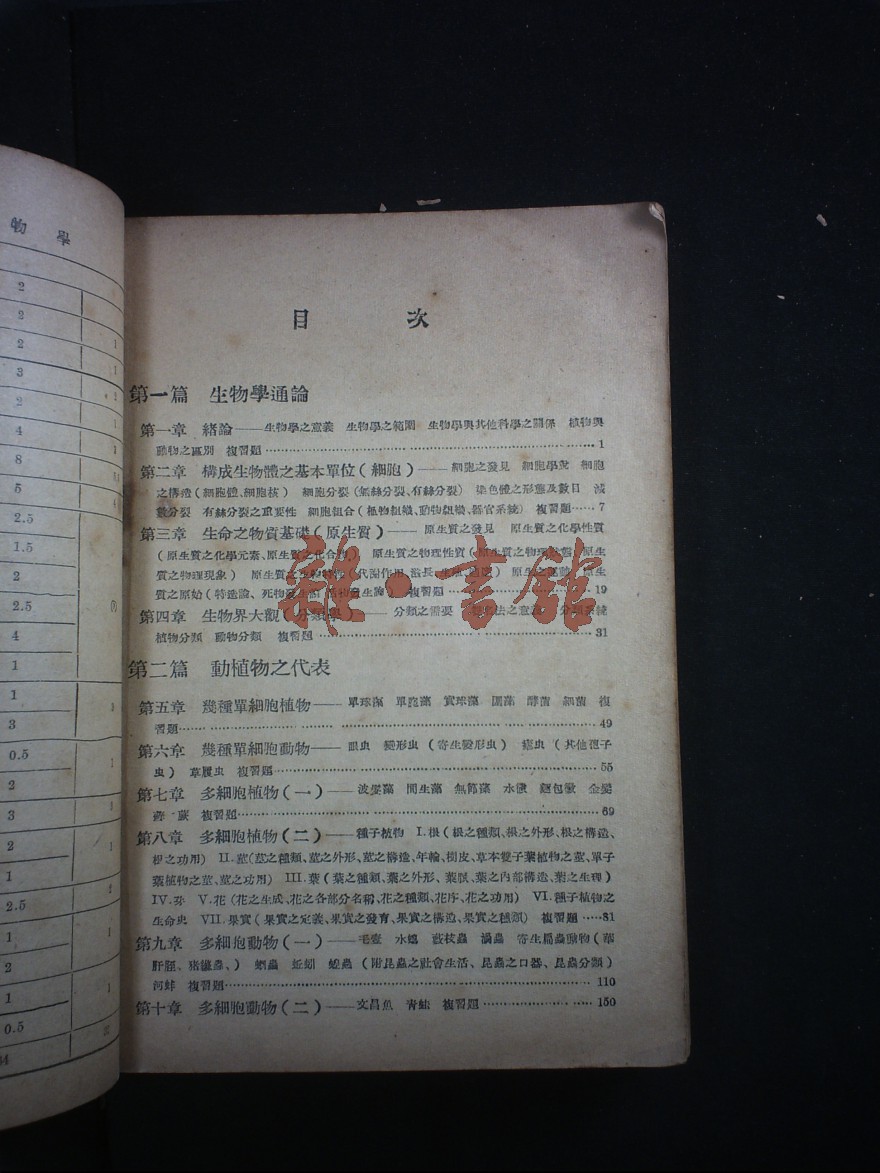 物 學
2
2
2
3
2
4
8
5
2.5
1.5
2
2.5
4
1
1
3
0.5
2
3
2
1
2.5
1
2
1
0.5
目 次
第一篇 生物學通論
第一章 緒論——生物學之意義 生物學之範圍 生物學與其他科學之關係 植物與
動物之區別 複習題……1
第二章 構成生物體之基本單位(細胞)——細胞之發見 細胞學說 細胞
之構造(細胞體、細胞核) 細胞分裂(無絲分裂、有絲分裂) 染色體之形態及數目 減
數分裂 有絲分裂之重要性 細胞組合(植物組織、動物組織、器官系統) 複習題……7
第三章 生命之物質基礎(原生質)——原生質之發見 原生質之化學性質
(原生質之化學元素、原生質之化合物) 原生質之物理性質(原生質之物理狀態、原生
質之物理現象) 原生質之生物特性(代謝作用、滋長、生殖、適應) 原生質之運動 原生
質之原始(特造論、死物 複習題……19
第四章 生物界大觀(分類學)——分類之需要 分類法之意義 分類系統
植物分類 動物分類 複習題……31
第二篇 動植物之代表
第五章 幾種單細胞植物——單球藻 單胞藻 實球藻 團藻 酵菌 細菌 複
習題……49
第六章 幾種單細胞動物——眼虫 變形虫 (寄生變形虫) 瘧虫 (其他孢子
虫) 草履虫 複習題……55
第七章 多細胞植物(一)——波髮藻 間生藻 無節藻 水黴 麵包黴 金髮
蘚 蕨 複習題……69
第八章 多細胞植物(二)——種子植物 I.根(根之種類、根之外形、根之構造、
根之功用) II.莖(莖之種類、莖之外形、莖之構造、年輪、樹皮、草本雙子葉植物之莖、單子
葉植物之莖、莖之功用) III.葉(葉之種類、葉之外形、葉脈、葉之內部構造、葉之生理)
IV.芽 V.花(花之生成、花之各部分名稱、花之種類、花序、花之功用) VI.種子植物之
生命史 VII.果實(果實之定義、果實之發育、果實之構造、果實之種類) 複習題……81
第九章 多細胞動物(一)——毛壺 水螅 薮枝蟲 渦蟲 寄生扁蟲動物(華
肝蛭、猪縧蟲、) 蛔蟲 蚯蚓 蝗蟲 (附昆蟲之社會生活、昆蟲之口器、昆蟲分類)
河蚌 複習題……110
第十章 多細胞動物(二)——文昌魚 青蛙 複習題……150
雜·書館